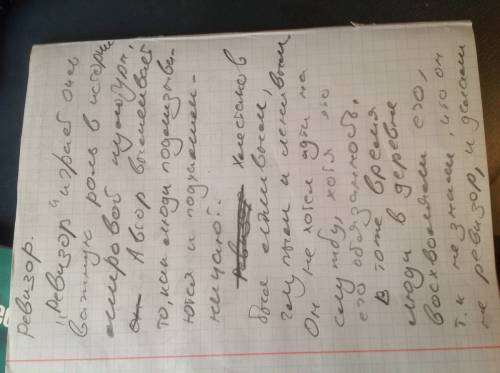 Ревизор.
„Ревизор" играет очень
важную роль в истории
мировой культуры.
Автор высмеивает
то, как люди подлизыва-
ются и подхалим-
ничают.
Хлестаков
был лживым,
глупым и ленивым
Он не хотел идти на
службу, хотя это
его обязанность.
В тоже время
люди в деревне
восхваляли его,
т.к не знали, что он
не ревизор, и делали